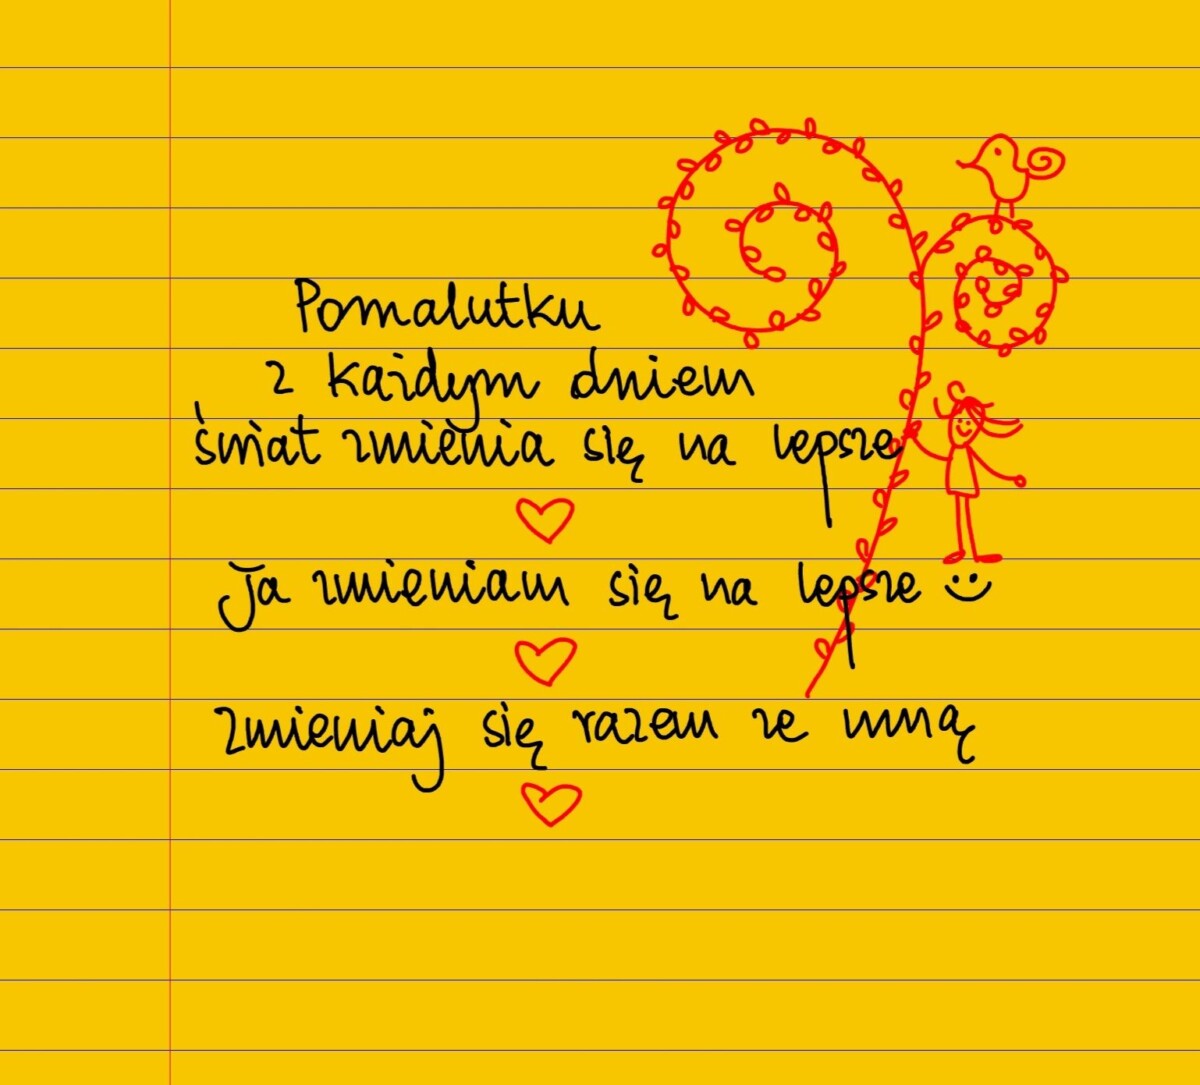 Pomalutku
z każdym dniem
świat zmienia się na lepsze
Ja zmieniam się na lepsze
zmieniaj się razem ze mną